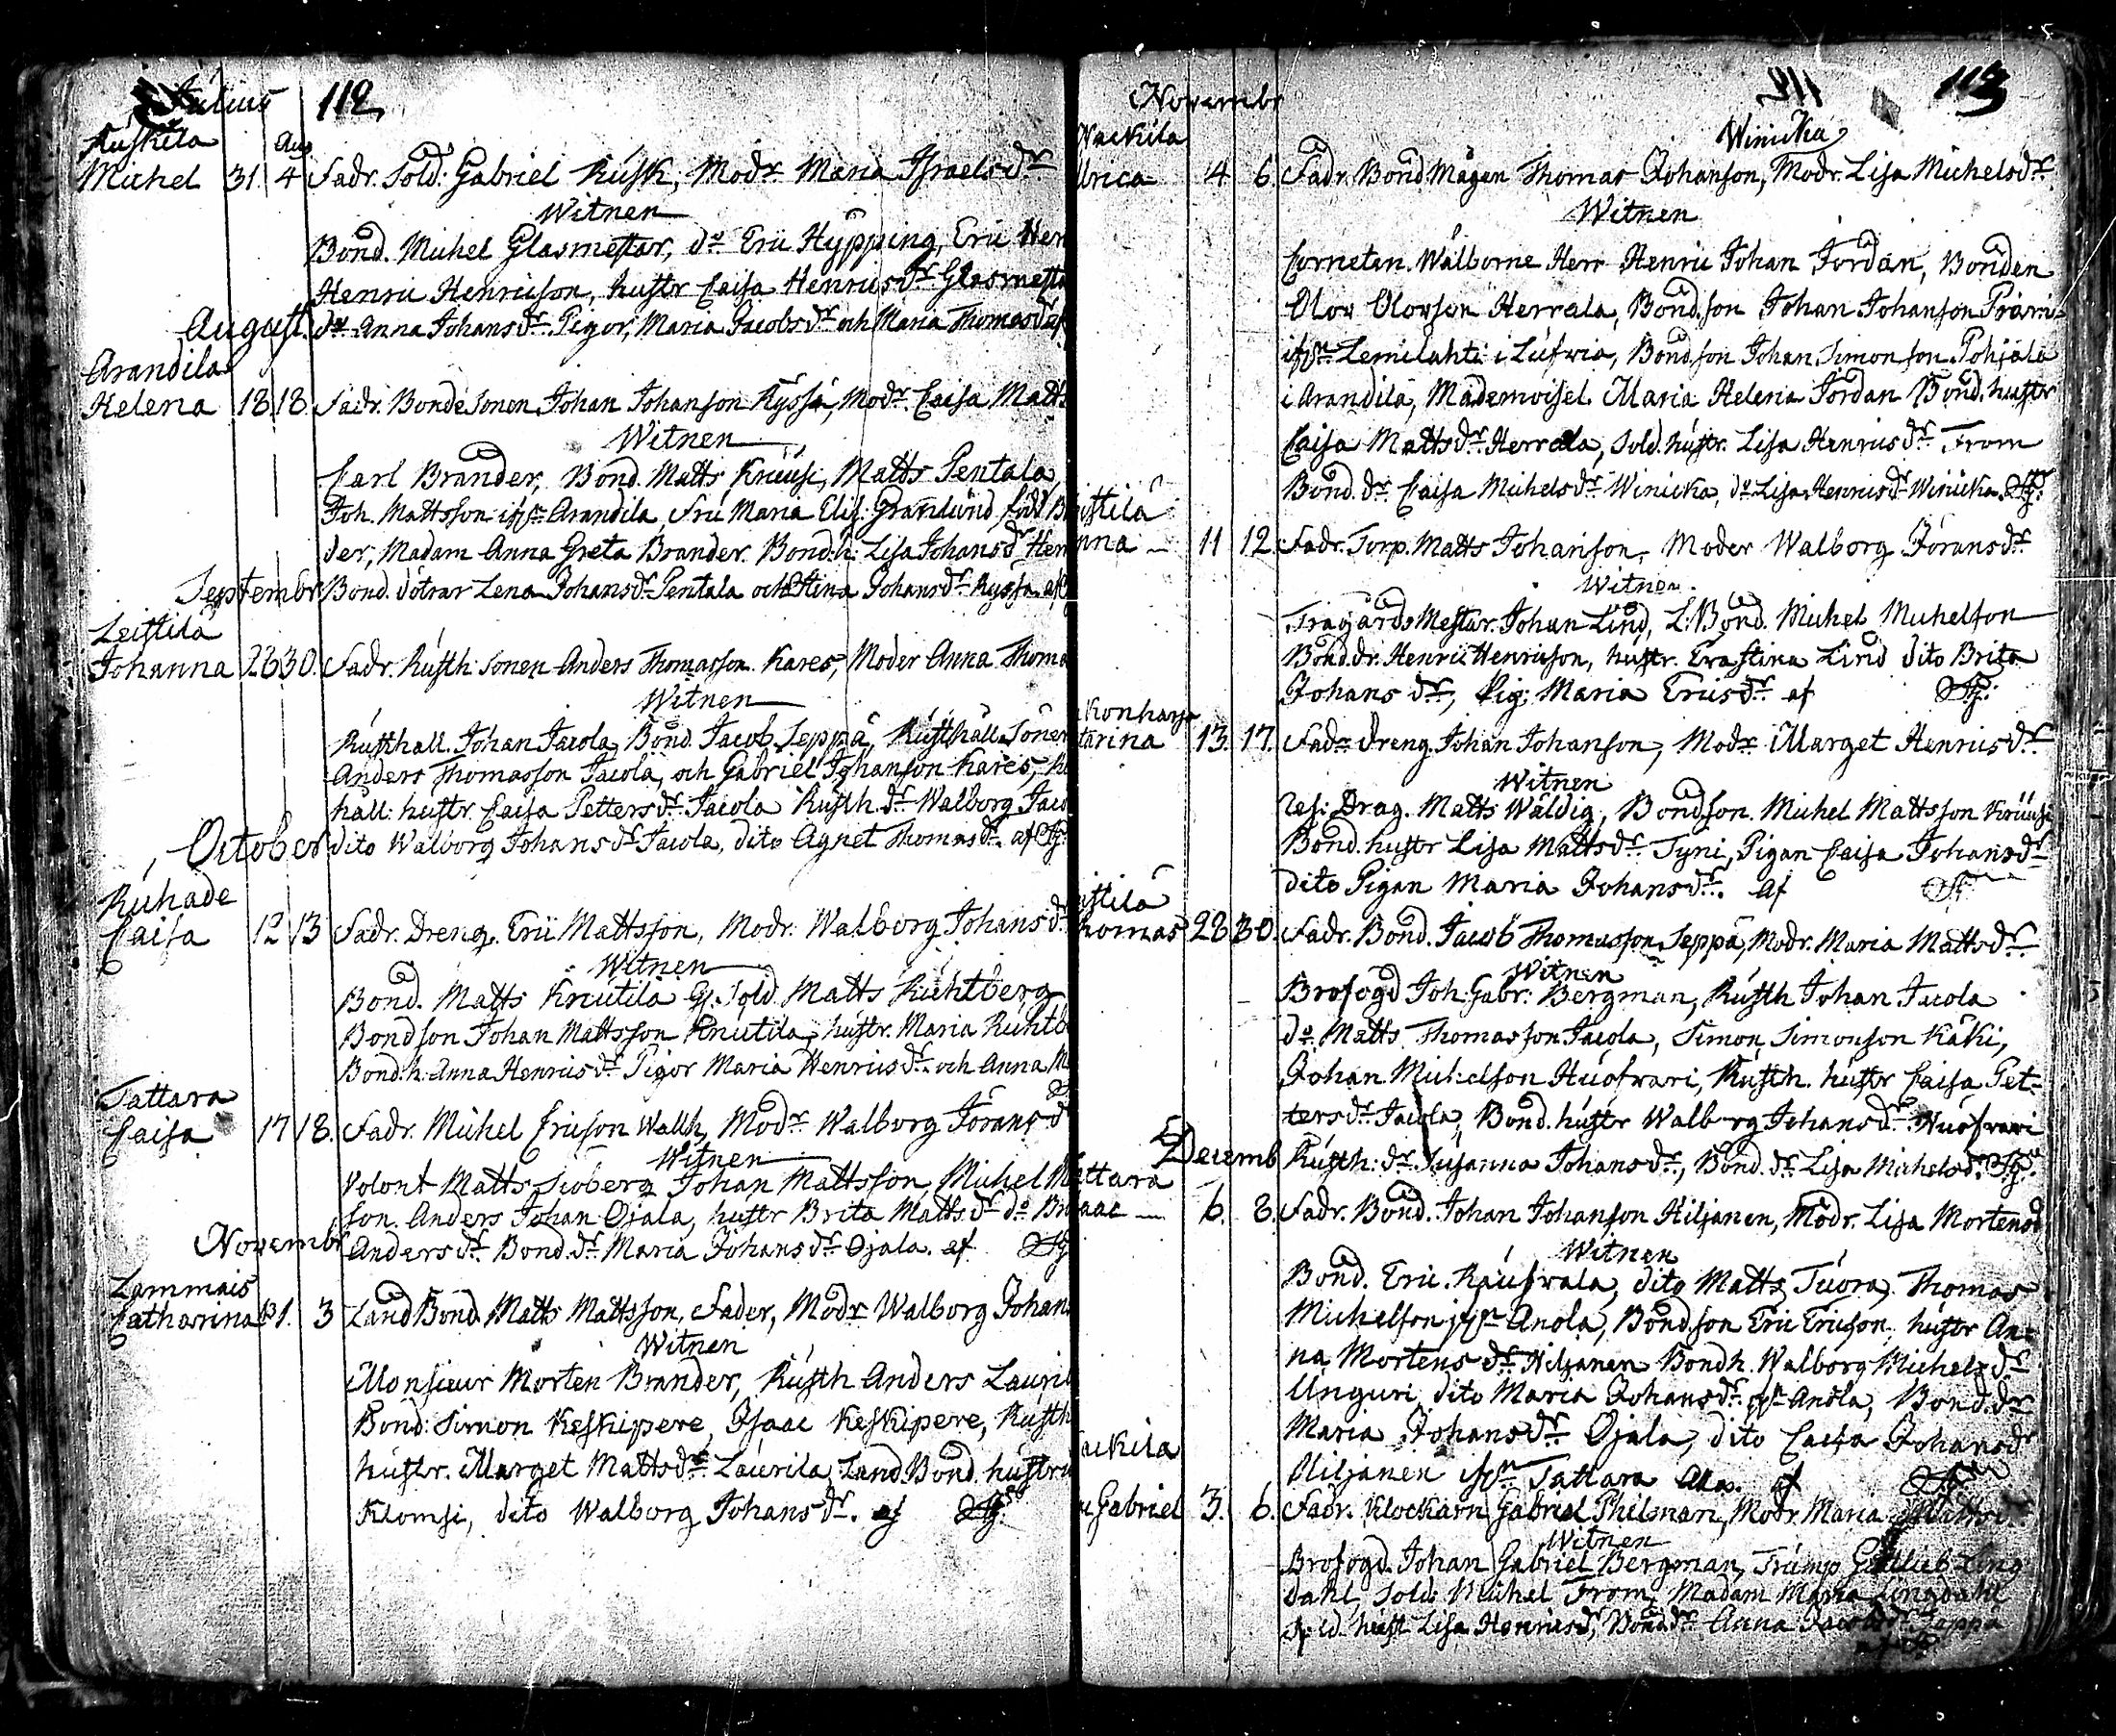 Julius 112
Kuskila Aug
Michel 31. 4 Fadr. Sold: Gabriel Rusk, Modr. Maria Israelsdr
Witnen
Bond. Michel Glasmestar, do Eric Hypping, Eric Hen
Henric Henricson, hustr Caisa Henricsdr Glasmesta
August. do Anna Johansdr Pigor, Maria Jacobsdr och Maria Thomasdr af
Arandila
Helena 18 18. Fadr. Bondesonen Johan Johanson Ryssä, Modr. Caisa Matts
Witnen
Carl Brander, Bond. Matts Knuusi, Matts Pentala
Joh. Mattsson ifrn Arandila, Fru Maria Elis: Granlund född B
der, Madam Anna Greta Brander. Bond:h: Lisa Johansdr Her
Septembr Bond. dötrar Lena Johansdr Pentala och Stina Johansdr Ryssä af
Leistila
Johanna 26 30. Fadr. Rusth: sonen Anders Thomasson Kares, Moder Anna Thoma
Witnen
Rusthåll. Johan Jacola, Bond. Jacob Seppä, Rusthåll. Sonen
Anders Thomasson Jacola, och Gabriel Johanson Kares,
håll: hustr Caisa Pettersdr Jacola Rusth. dr Walborg Jaco
October dito Walborg Johansdr Jacola, dito Agnet Thomasdr. af
Ruhade
Caisa 12 13 Fadr. Dreng. Eric Mattsson, Modr. Walborg Johansdr
Witnen
Bond. Matts Knutila Sold Matts Ruhtberg
Bondson Johan Mattsson Knutila, hustr. Maria Ruhtb
Bond.h. Anna Henricsdr Pigor Maria Henricsdr och Anna M
Tattara
Caisa 17 18. Fadr. Michel Ericson Wallh, Modr. Walborg Göransdr
Witnen
Volont Matts Sioberg Johan Mattsson, Michel M
son. Anders Johan Ojala, hustr Brita Mattsdr do Br
Novembr Andersdr Bond. dr Maria Johansdr Ojala. af
Lammais
Catharina 31. 3 Land Bond. Matts Mattsson, Fader, Modr Walborg Johan
Witnen
Monsieur Morten Brander, Rusth Anders Lauril
Bond: Simon Keskipere, Isaac Keskipere, Rusth
hustr. Marget Mattsdr Laurila, Land Bond. hustru
Klomsi, dito Walborg Johansdr. af
Novembr 113
Wackila Winicka
lrica 4 6 Fadr. Bond Mågen Thomas Johanson, Modr. Lisa Michelsdr.
Witnen
Corneten Wälborne Herr Henric Johan Jordan, Bonden
Olov Olovson Herrala, Bond.son Johan Johanson
ifrn Lemilahti i Luswia, Bondson Johan Simonson Pohjala
i Arandila, Mademoisel. Maria Helena Jordan Bond. hustr
Caisa Mattsdr Herrala, Sold. hustr. Lisa Henricsdr From
Bond. dr Caisa Michelsdr Winicka, do Lisa Henricsdr Winicka.
istila
nna 11 12. Fadr. Torp. Matts Johanson, Moder Walborg Göransdr
Witnen
Trägårds Mestar. Johan Lind, L: Bond. Michel Michelson
Bond. dr. Henric Henricson, hustr. Erastina Lind dito Brita
Johansdr, Pig: Maria Ericsdr af
konharju
tarina 13. 17. Fadr Dreng. Johan Johanson, Modr. Marget Henricsdr.
Witnen
Drag. Matts Wäldig, Bondson. Michel Mattsson Knuusi
Bond. hustr Lisa Mattsdr Tyni, Pigan Caisa Johansdr
dito Pigan Maria Johansdr. af
istila
homas 28 30. Fadr. Bond. Jacob Thomasson Seppä, Modr. Maria Mattsdr
Witnen
Brofogd Joh: Gabr: Bergman, Rusth Johan Jacola
do Matts Thomasson Jacola, Simon Simonson Käki,
Johan Michelson Huofvari, Rusth. hustr Caisa Pet-
tersdr Jacola, Bond. hustr Walborg Johansdr Huofvari
Decemb Rusth: dr Susanna Johansdr, Bond. dr Lisa Michelsdr.
ttara
saac 6. 8. Fadr. Bond. Johan Johanson Hiljanen, Modr. Lisa Mortensd
Witnen
Bond. Eric Räufvala, dito Matts Tuora, Thomas
Michelson ifrn Anola, Bondson Eric Ericson, hustr An-
na Mortensdr Hiljanen Bondh. Walborg Michelsdr
Unguri, dito Maria Johansdr ifrn Anola, Bond. dr
Maria Johansdr Ojala, dito Caisa Johansdr
Hiljanen ifrn Tattara af
ackila
Gabriel 3. 6. Fadr. Klockarn Gabriel Philman, Modr. Maria
Witnen
Brofogd. Johan Gabriel Bergman, Trump Gottlieb Ling
dahl, Sold: Michel From, Madam Maria Lingdahl
Sold. hust Lisa Henricsd, Bond. dr Anna Jacobsdr Seppä